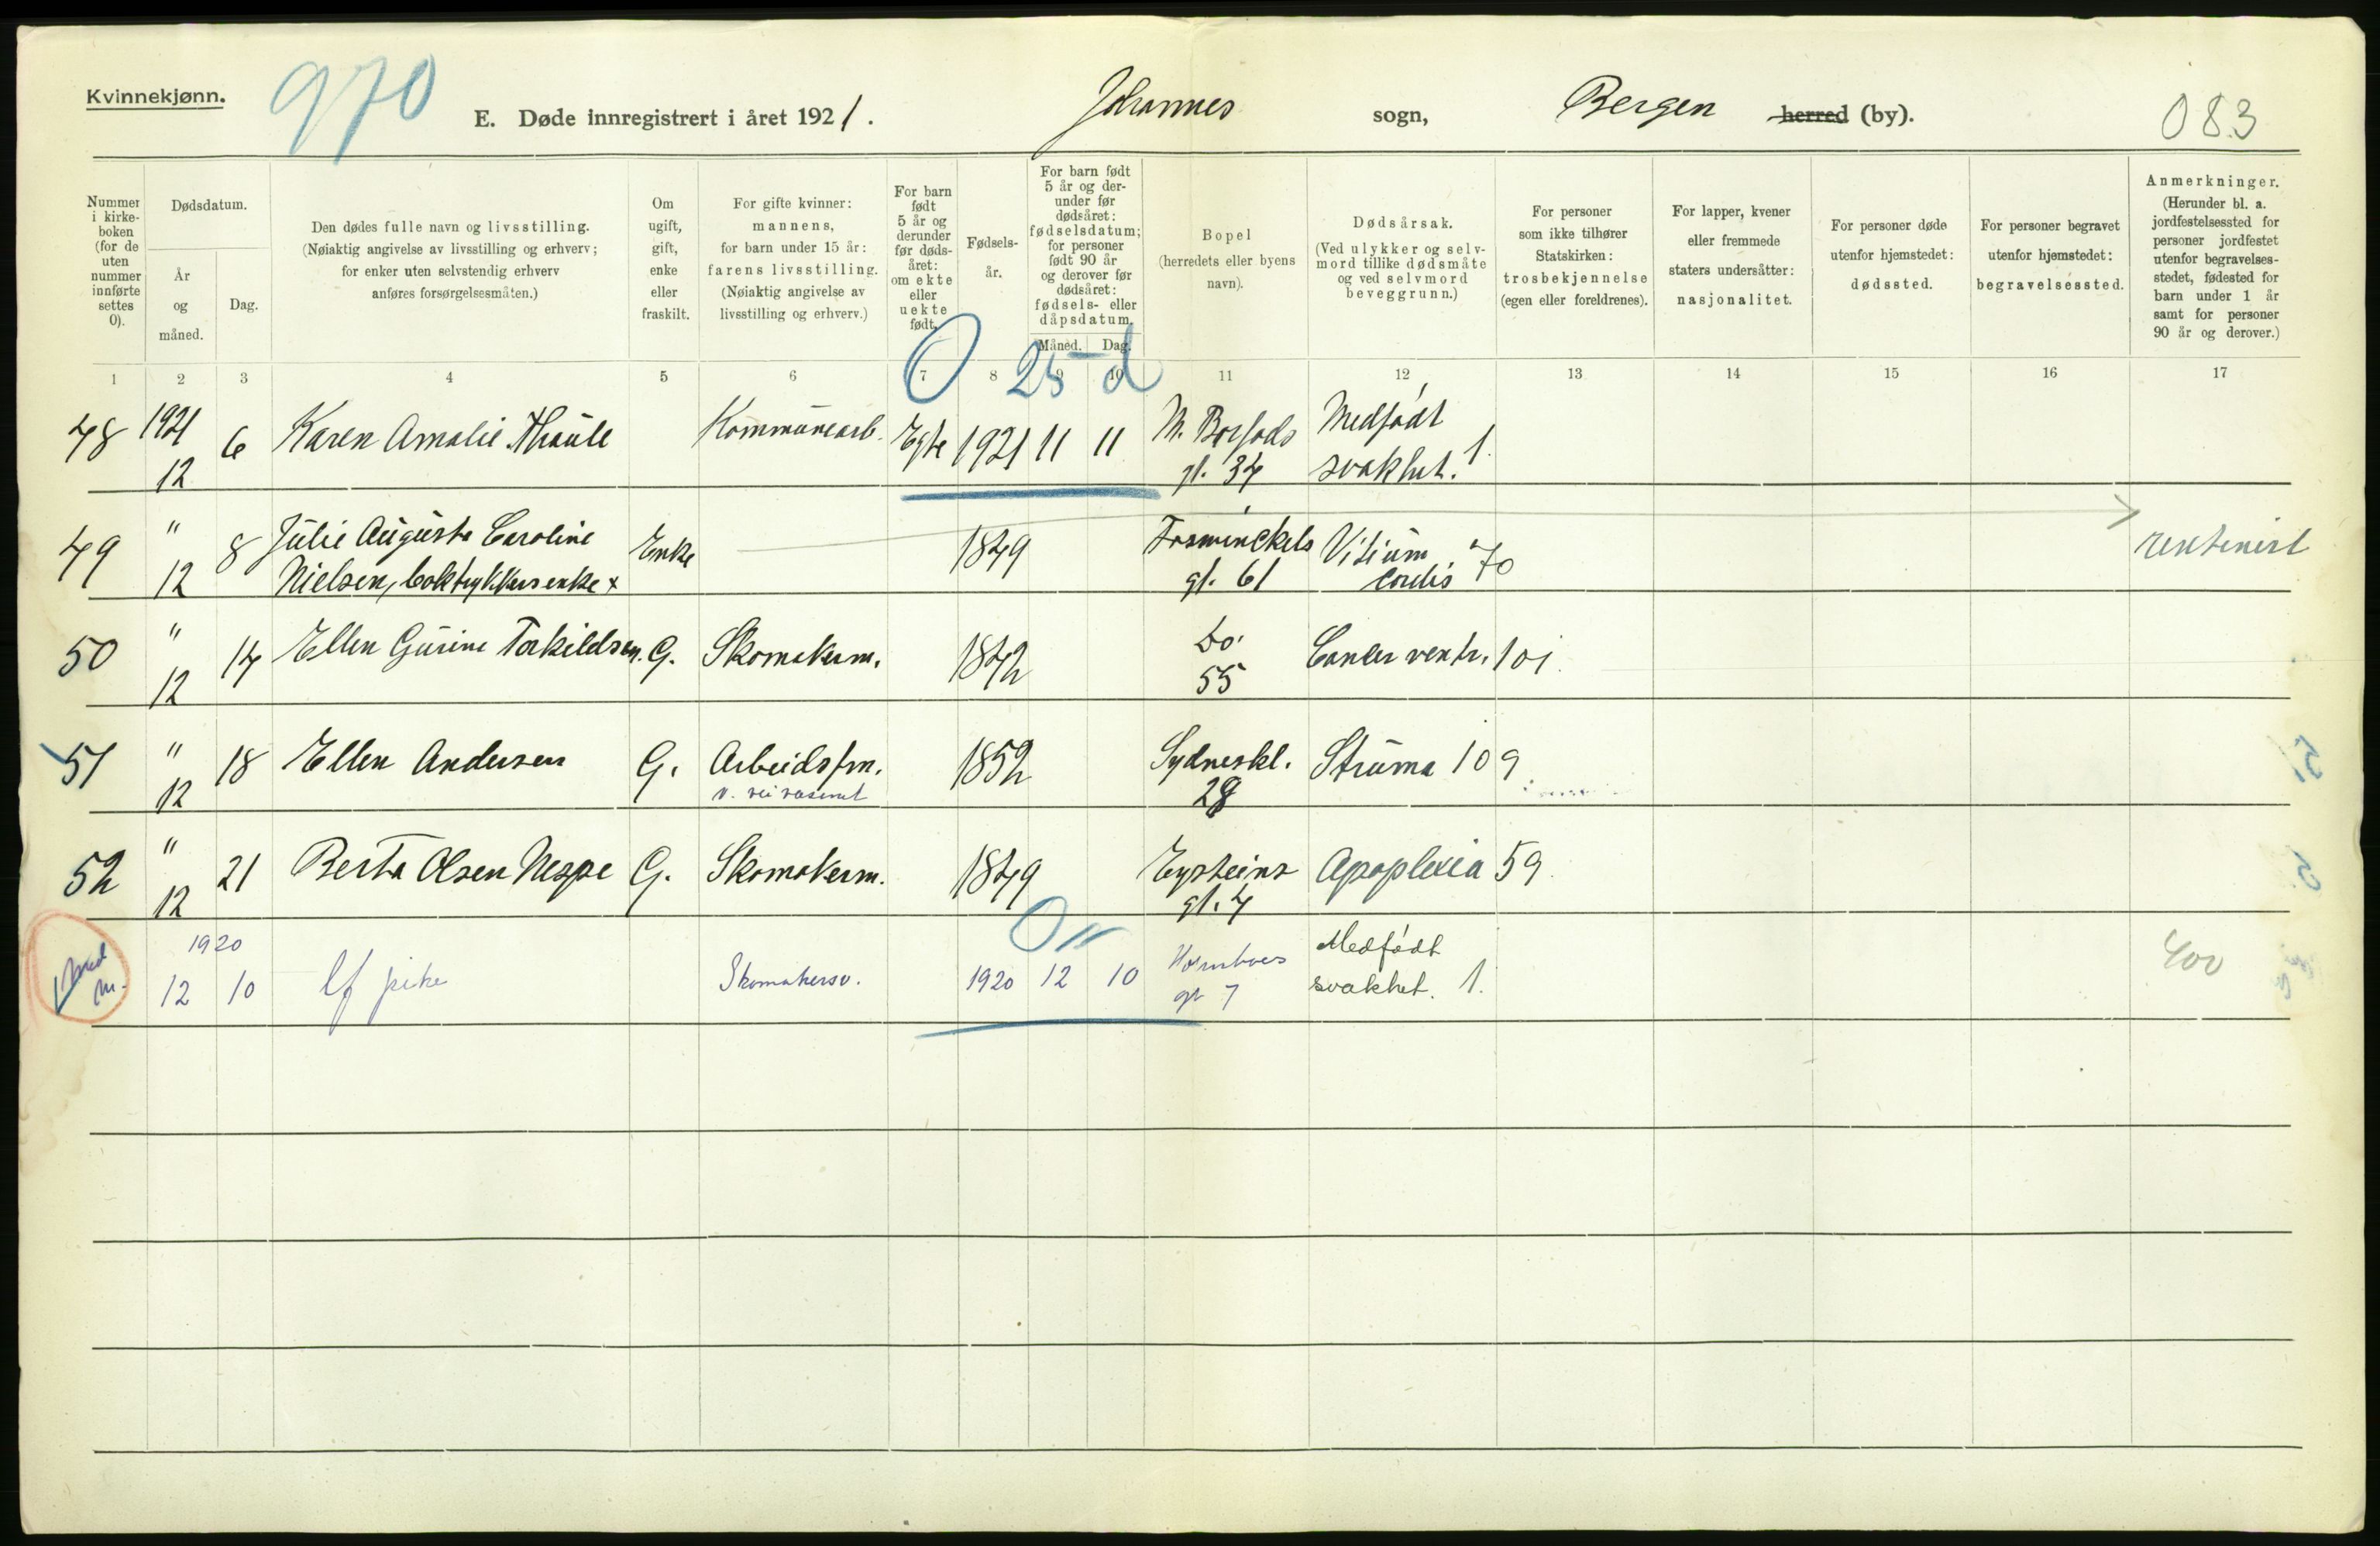 Kvinnekjønn.
970
E. Døde innregistrert i året 1921.
Johannes sogn,
Bergen herred (by).
083
Nummer i kirke-boken (for de uten nummer innførte settes 0).
Dødsdatum.
År og måned.
Dag.
Den dødes fulle navn og livsstilling.
(Nøiaktig angivelse av livsstilling og erhverv;
for enker uten selvstendig erhverv
anføres forsørgelsesmåten.)
Om ugift, gift, enke eller fraskilt.
For gifte kvinner:
mannens,
for barn under 15 år:
farens livsstilling.
(Nøiaktig angivelse av
livsstilling og erhverv.)
For barn født 5 år og derunder før døds-året: om ekte eller uekte født.
Fødsels-år.
For barn født 5 år og der-under før dødsåret: fødselsdatum; for personer født 90 år og derover før dødsåret: fødsels- eller dåpsdatum.
Måned. Dag.
Bopel
(herredets eller byens
navn).
Dødsårsak.
(Ved ulykker og selv-
mord tillike dødsmåte
og ved selvmord
beveggrunn.)
For personer
som ikke tilhører
Statskirken:
trosbekjennelse
(egen eller foreldrenes).
For lapper, kvener
eller fremmede
staters undersåtter:
nasjonalitet.
For personer døde
utenfor hjemstedet:
dødssted.
For personer begravet
utenfor hjemstedet:
begravelsessted.
Anmerkninger.
(Herunder bl. a.
jordfestelsessted for
personer jordfestet
utenfor begravelses-
stedet, fødested for
barn under 1 år
samt for personer
90 år og derover.)
1 2 3 4 5 6 7 8 9 10 11 12 13 14 15 16 17
0 25 d
48 1921 12 6 Karen Amalie Kommunearb. Egte 1921 11 11
gt. 34 Medfødt svakhet. 1.
49 " 12 8 Julie Augusta Caroline
Nielsen, boktrykkersenke x Enke 1849 Fosswinckels
gt. 61 Vitium cordis 70 rentenist
50 " 12 14 Ellen Gurine Torkildsen. G. Skomakerm. 1842 do. 55 Cancer ventr. 101.
51 " 12 18 Ellen Andersen G. Arbeidsfm.
1852 Sydneskl. 28 Struma 109
52 " 12 21 Berta Olsen Neppe G. Skomakerm. 1849 Eysteins gt. 4 Apoplexia 59.
0 11
1920 12 10 lf pike Skomakersv. 1920 12 10
gt 7 Medfødt svakhet. 1.
400